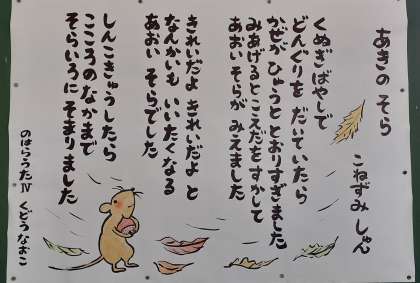 あきの そら
こねずみ しゅん
くぬぎばやしで
どんぐりを だいていたら
かぜが ひゅうと とおりすぎました
みあげるとこえだをすかして
あおいそらが みえました
きれいだよ きれいだよ と
なんかいも いいたくなる
あおい そらでした
しんこきゅうしたら
こころのなかまで
そらいろに そまりました
のはらうたⅣ くどうなおこ